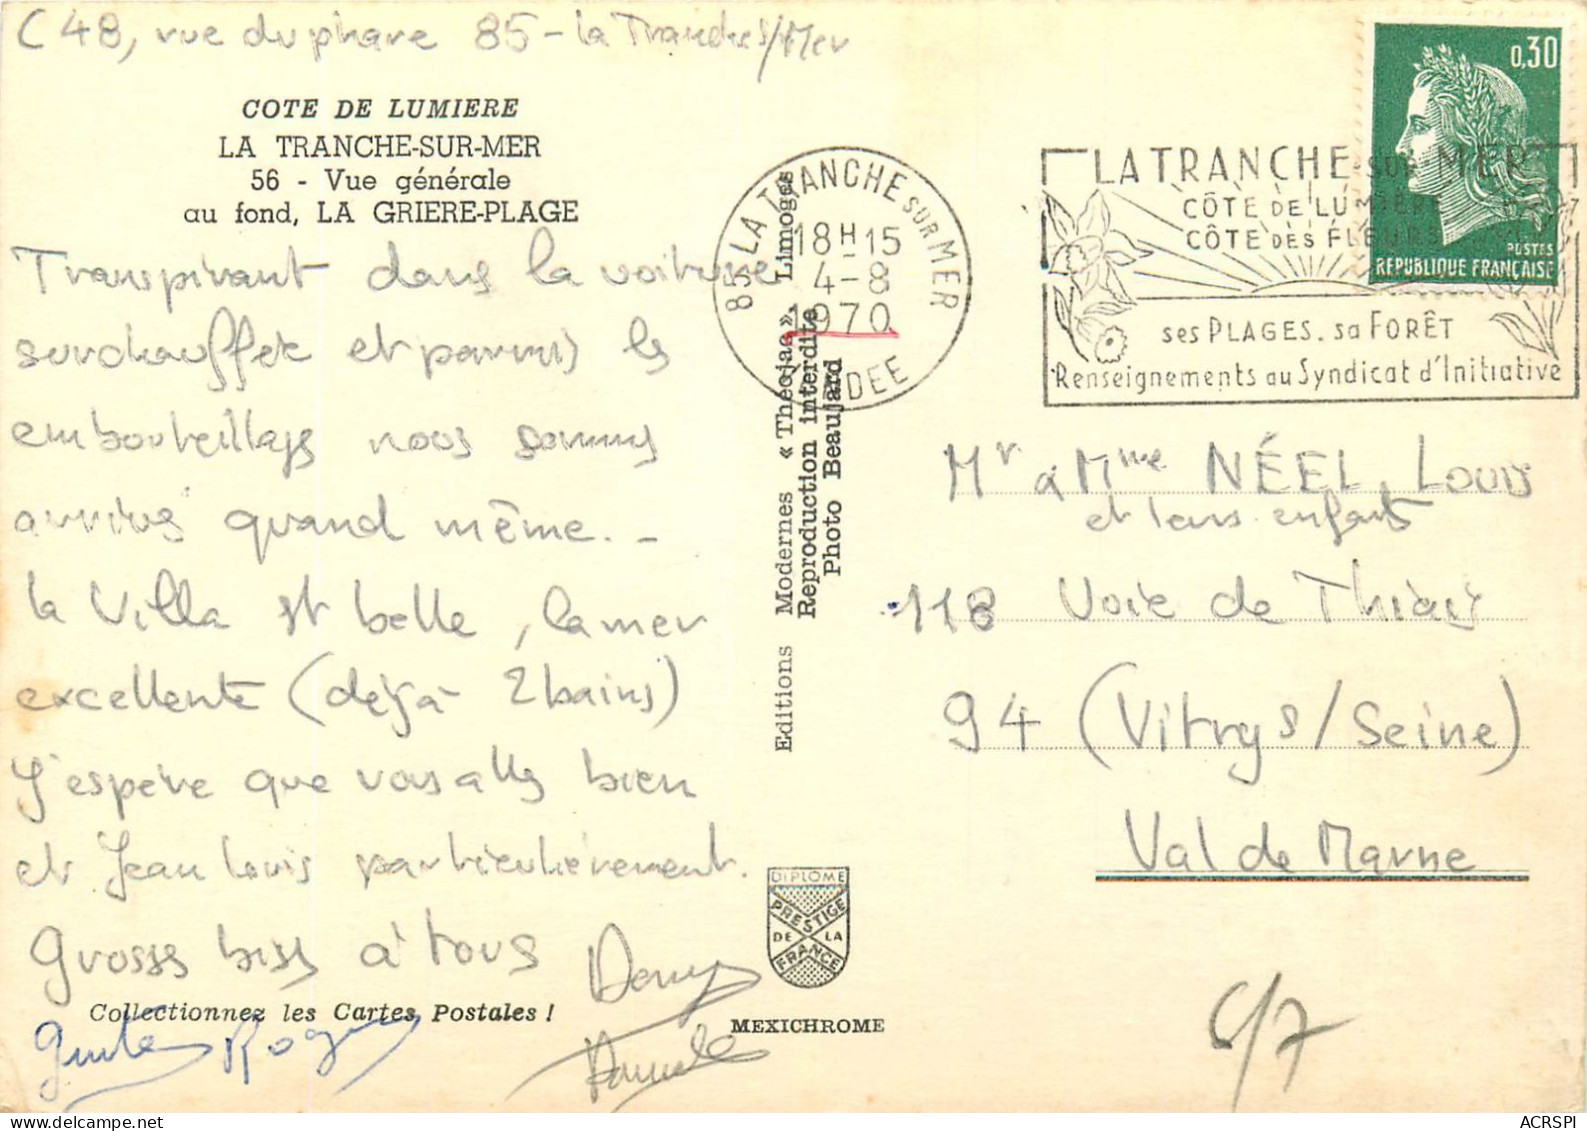 C 48, rue du phare 85 - la Tranche s/Mer
COTE DE LUMIERE
LA TRANCHE-SUR-MER
56 - Vue générale
au fond, LA GRIERE-PLAGE
Transpirant dans la voiture
surchauffée et parmi les
embouteillages nous sommes
arrivés quand même. -
la Villa est belle, la mer
excellente (déjà 2 bains)
J'espère que vous allez bien
et Jean Louis particulièrement.
Grosses bises à tous
Collectionnez les Cartes Postales !
Roger
Editions Modernes « Théojac » Limoges
Reproduction interdite
Photo Beaujard
DIPLOME
PRESTIGE
DE LA
FRANCE
MEXICHROME
85 LA TRANCHE SUR MER
18H15
4-8
1970
VENDEE
LA TRANCHE-SUR MER
CÔTE DE LUMIÈRE
CÔTE DES FLEURS
ses PLAGES. sa FORÊT
Renseignements au Syndicat d'Initiative
0,30
POSTES
REPUBLIQUE FRANÇAISE
Mr & Mme NÉEL Louis
et leurs enfants
118 Voie de Thiais
94 (Vitry s/Seine)
Val de Marne
ACRSPI